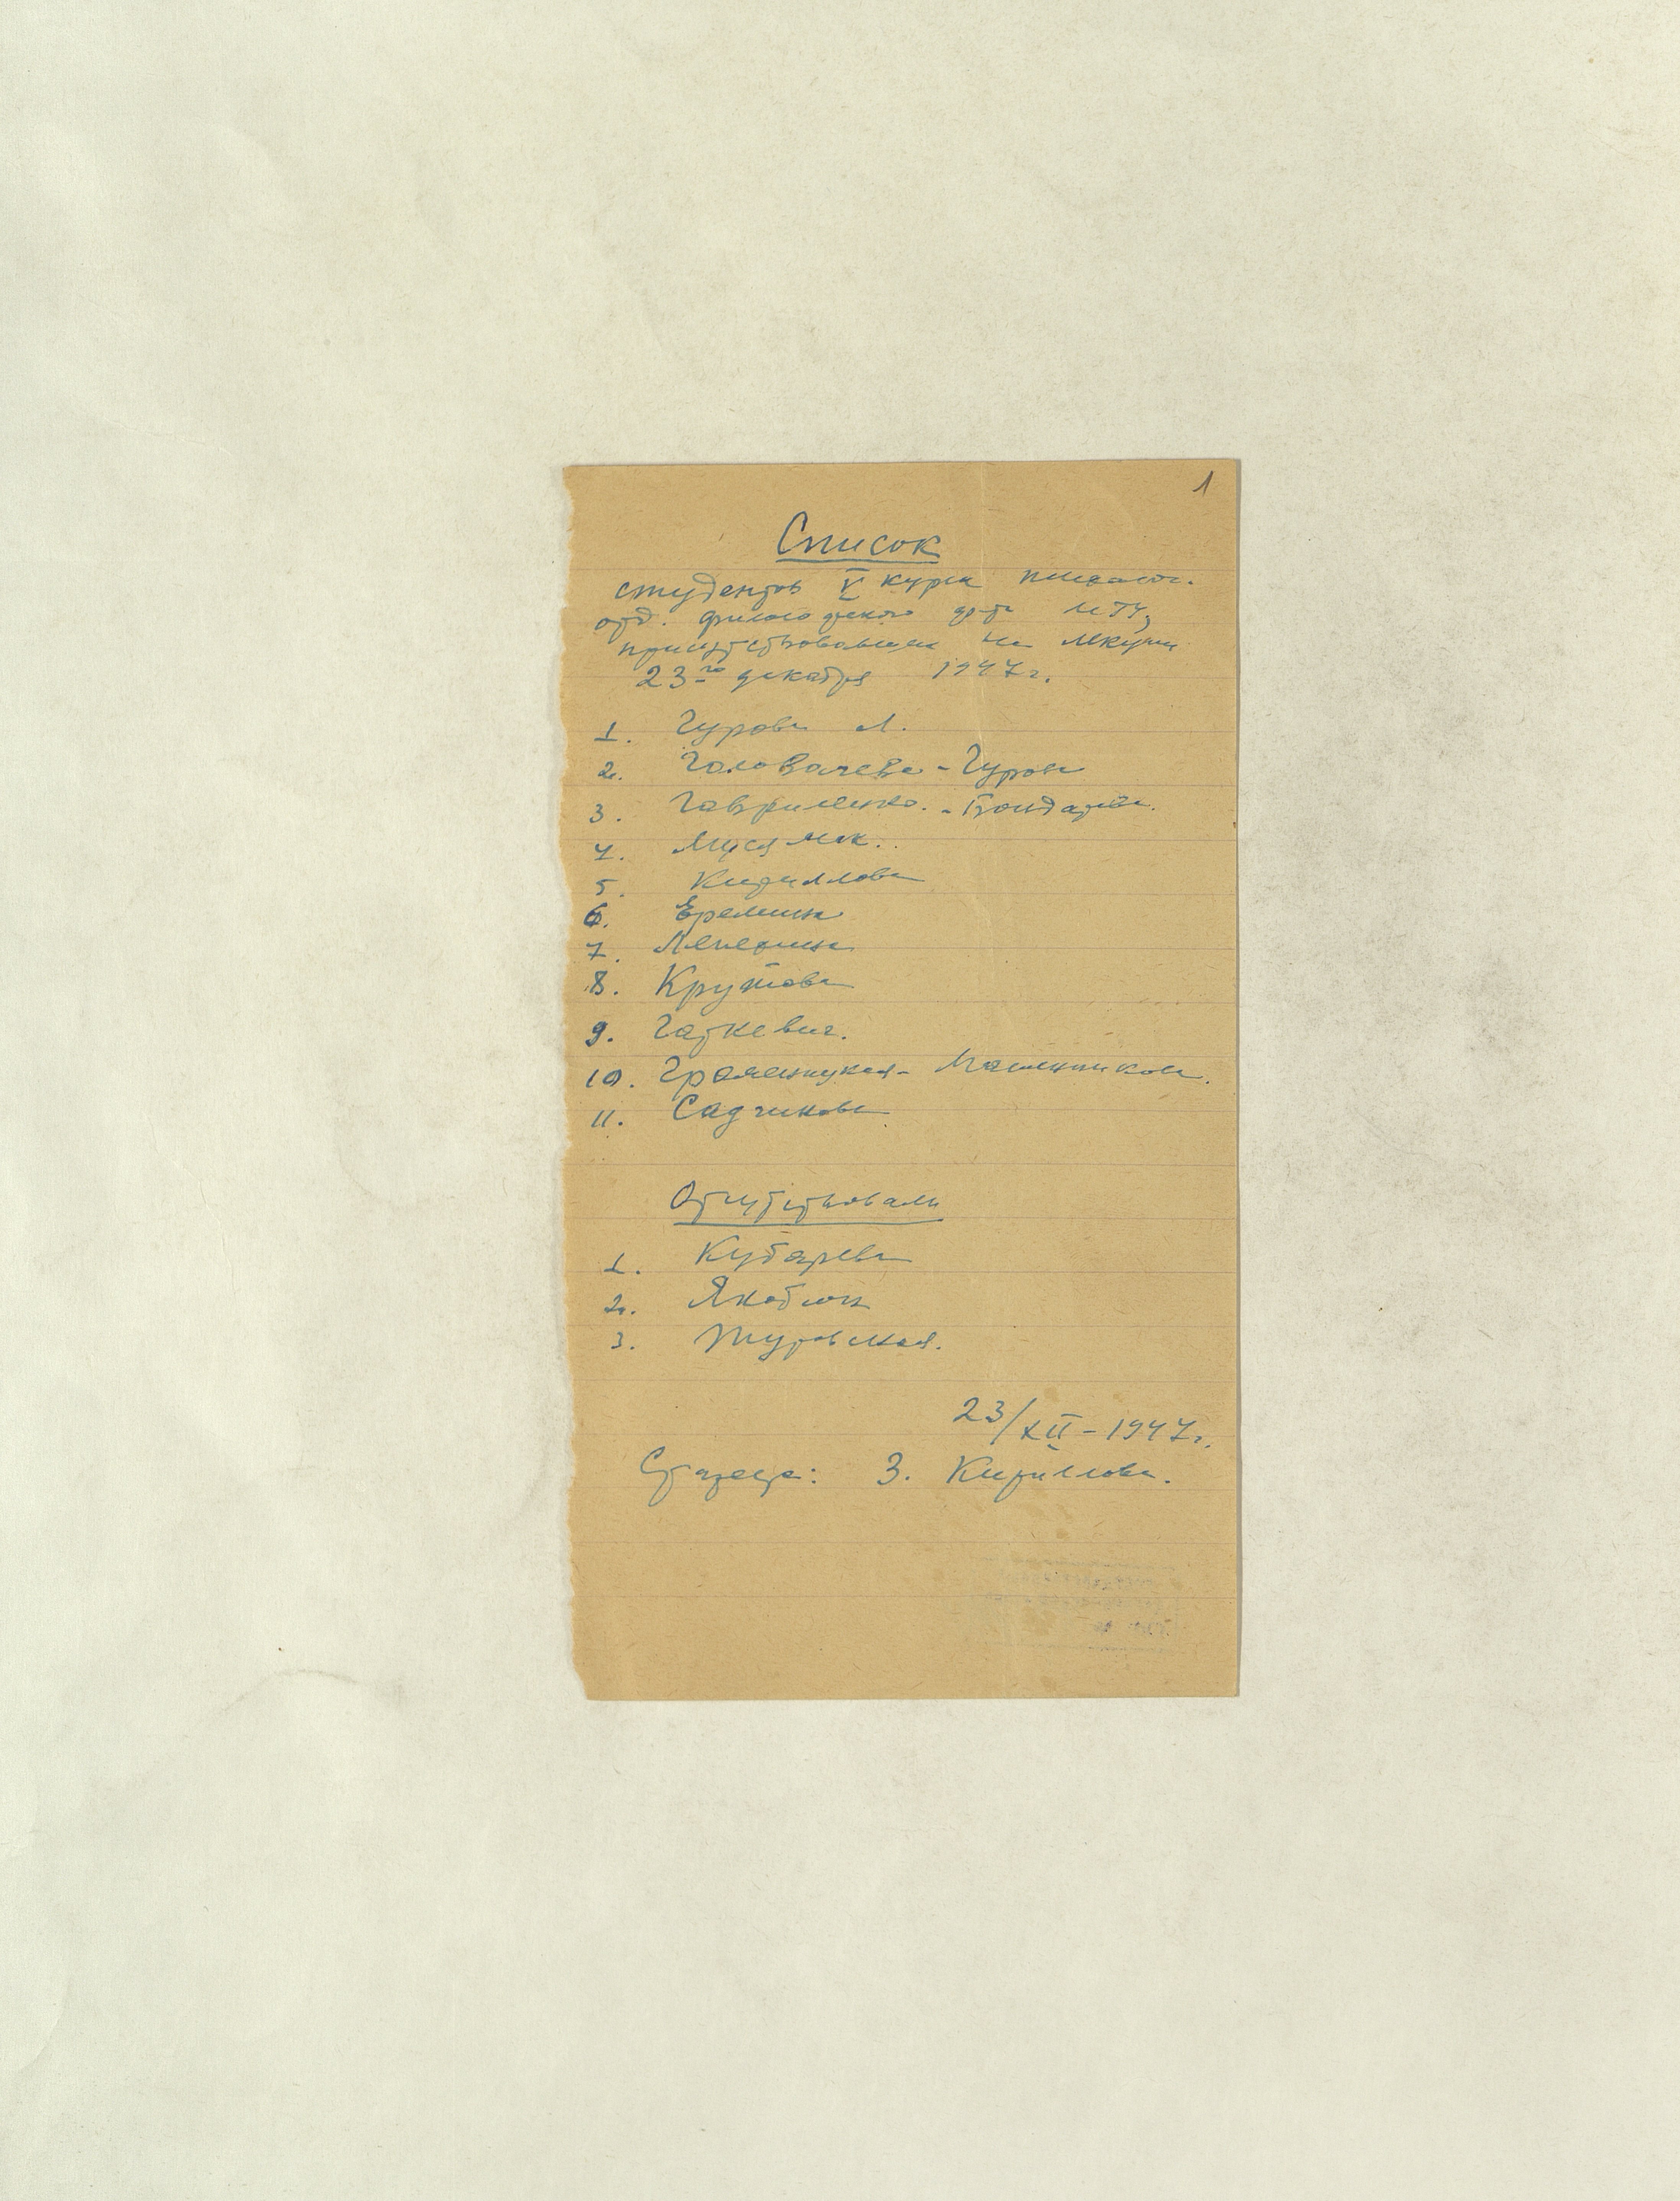 1
Список
студентов V курса психолог.
отд. философского ф-та МГУ,
присутствовавших на лекции
23го декабря 1947 г.
1. Гурова Л.
2. Головачева - Гурова
3. Гавриленко. - Бондарева.
4.
5. Кириллова
6. Еремина
7. Лепехина
8. Крутова
9. Гаткевич.
10. Машинникова.
11. Садчикова
Отсутствовали
1. Кубарева
2. Якобсон
3. Туровская.
23/XII - 1947 г.
Староста: З. Кириллова.